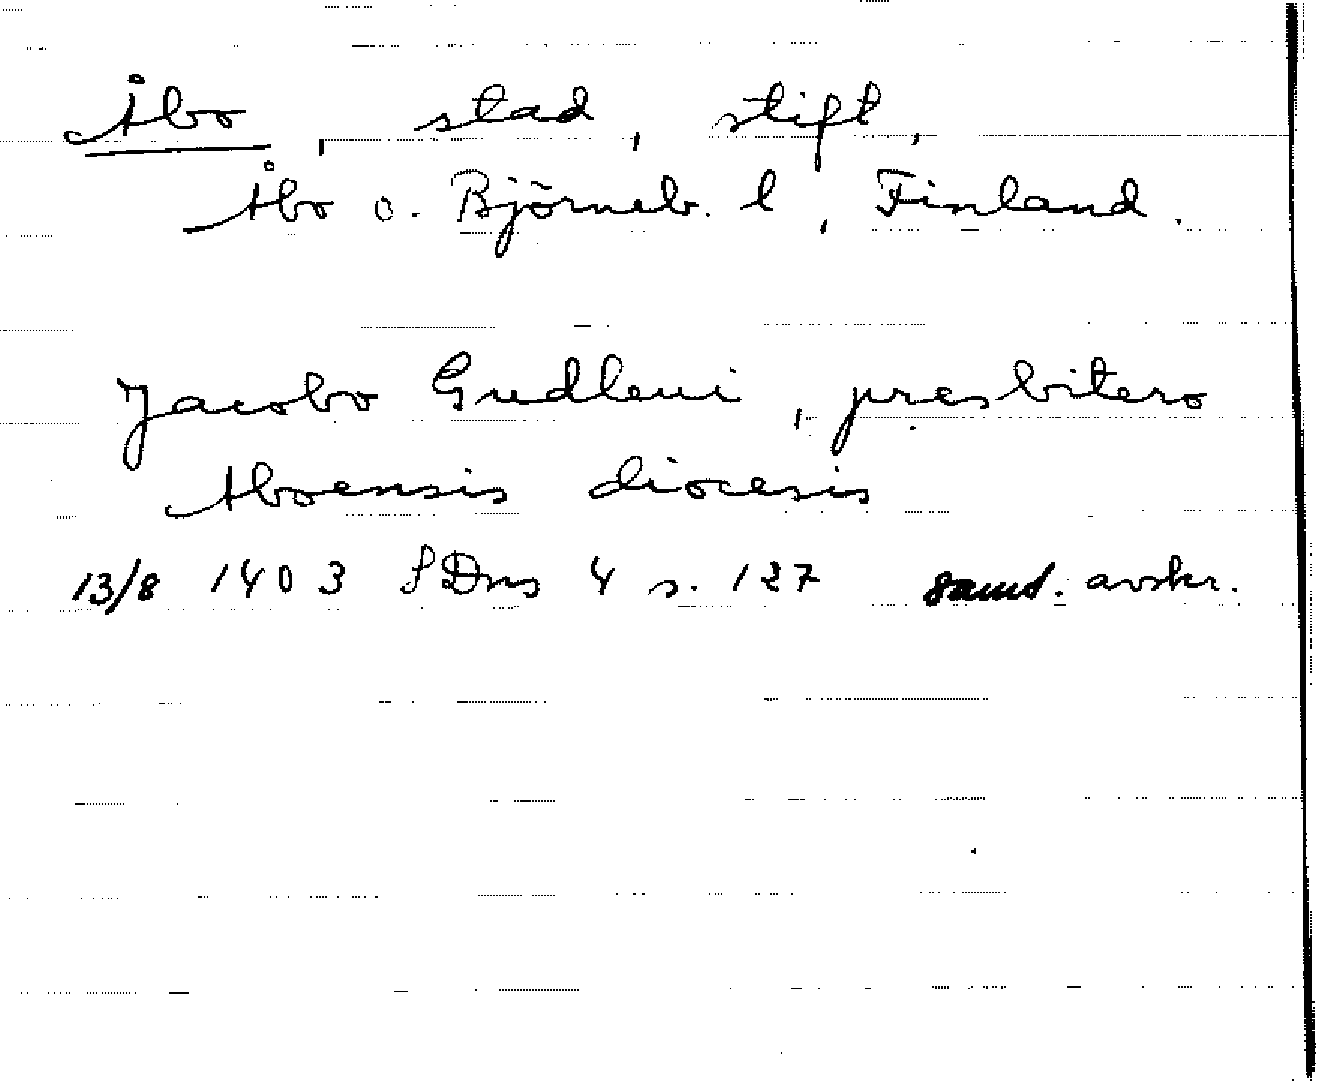 Åbo, stad, stift,
Åbo o. Björneb. l, Finland.
Jacobo Gudleui, presbitero
Aboensis diocesis
13/8 1403 SDns 4 s. 127 samt. avskr.